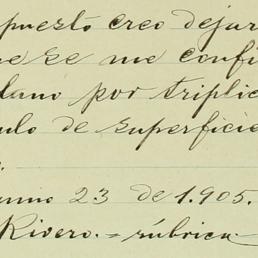 puesto creo dejar
se me confi
lano por triplic
ulo de superficie
23 de 1.905.
Rivero. = rúbrica